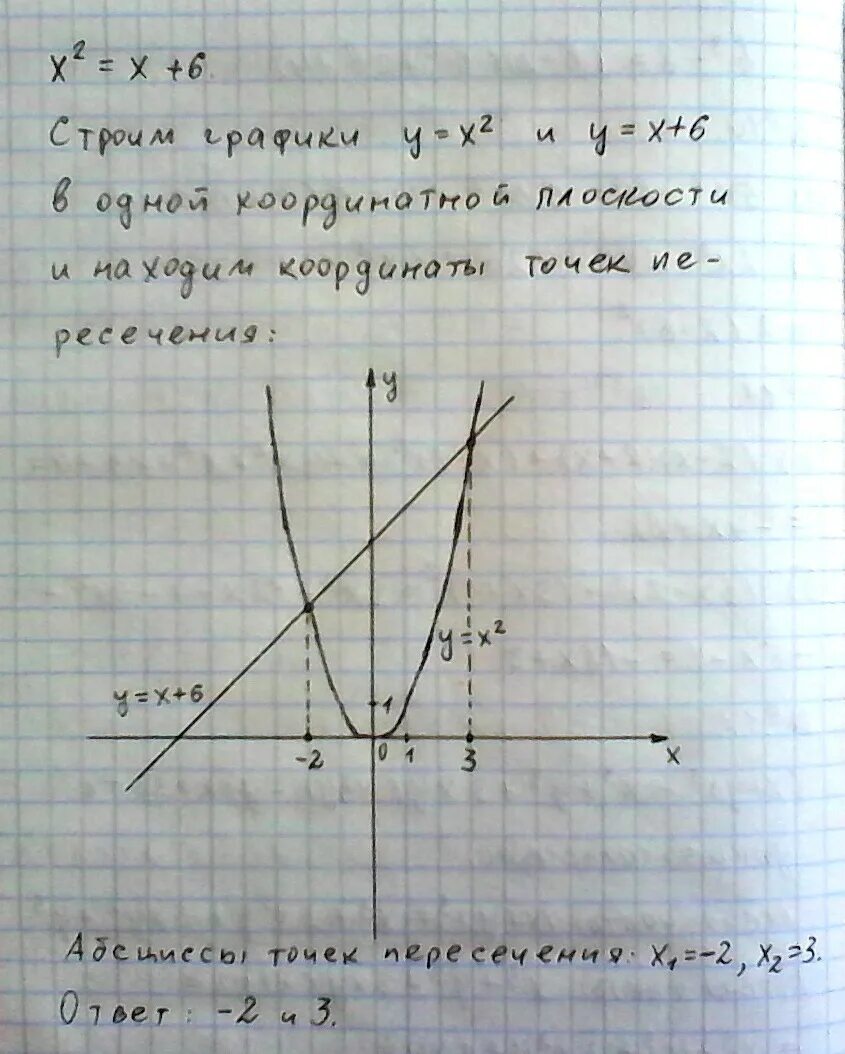 x² = x + 6.
Строим графики y = x² и y = x+6
в одной координатной плоскости
и находим координаты точек пе-
ресечения:
y
y = x²
y = x+6
1
-2 0 1 3 x
Абсциссы точек пересечения: x₁=-2, x₂=3.
Ответ: -2 и 3.